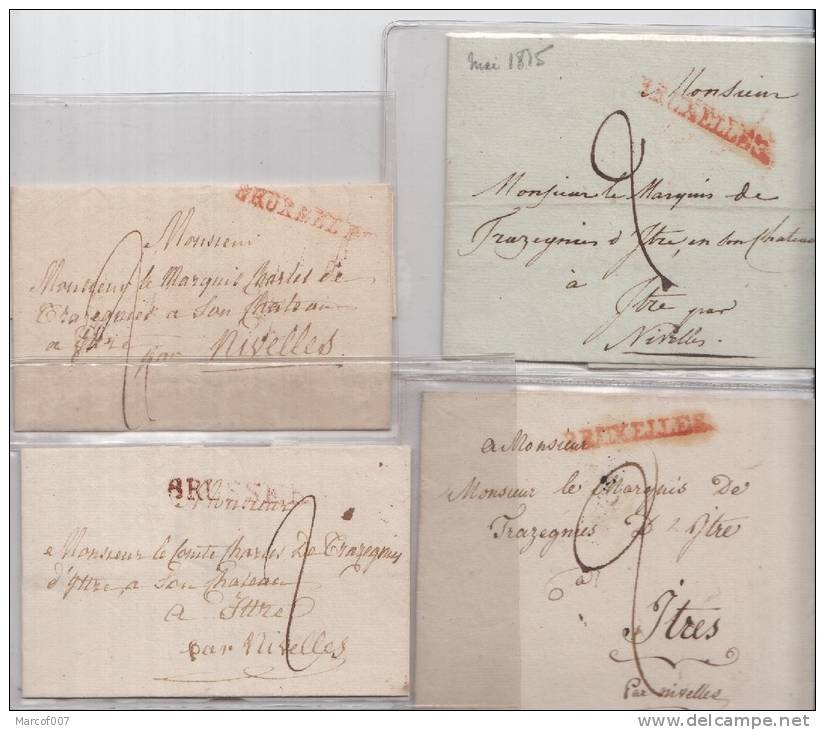 BRUXELLES
Monsieur
Monsieur le Marquis Charles de
Trazegnies a son Chateau
a Ittre
par Nivelles
mai 1815
BRUXELLES
Monsieur
Monsieur le Marquis de
Trazegnies d'Itre, en son Chateau
à
Itre par
Nivelles.
BRUSSEL
Monsieur
Monsieur le Comte Charles De Trazegnies
d'Yttre, a Son Chateau
a Ittre
par Nivelles
2
BRUXELLES
a Monsieur
Monsieur le Marquis De
Trazegnies D'Ytre
a
Itres
Par nivelles
Marcof007
delcampe.net